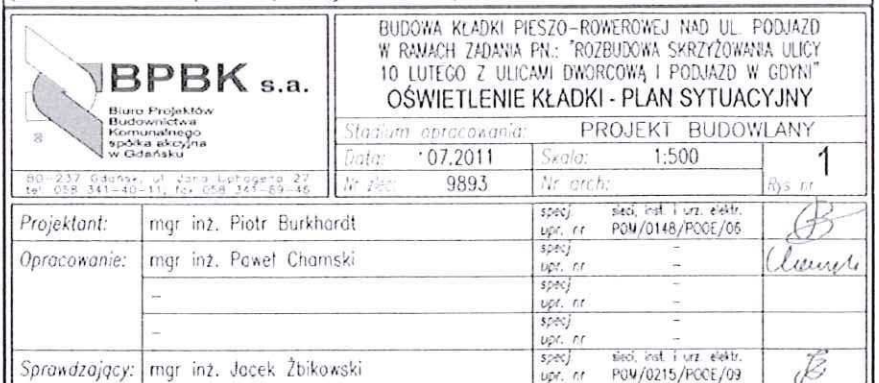 BPBK s.a.
Biuro Projektów
Budownictwa
Komunalnego
spółka akcyjna
w Gdańsku
80-237 Gdańsk, ul. Jana Uphagena 27
tel. 058 341-40-11, fax 058 341-89-46
BUDOWA KŁADKI PIESZO-ROWEROWEJ NAD UL. PODJAZD
W RAMACH ZADANIA PN.: "ROZBUDOWA SKRZYŻOWANIA ULICY
10 LUTEGO Z ULICAMI DWORCOWĄ I PODJAZD W GDYNI"
OŚWIETLENIE KŁADKI - PLAN SYTUACYJNY
Stadium opracowania: PROJEKT BUDOWLANY
Data: 07.2011 Skala: 1:500 1
Nr zlec: 9893 Nr arch: Rys nr
Projektant: mgr inż. Piotr Burkhardt specj sieci, inst. i urz. elektr.
upr. nr POM/0148/POOE/06
Opracowanie: mgr inż. Paweł Chamski specj -
upr. nr -
- specj -
upr. nr -
- specj -
upr. nr -
Sprawdzający: mgr inż. Jacek Żbikowski specj sieci, inst. i urz. elektr.
upr. nr POM/0215/POOE/09